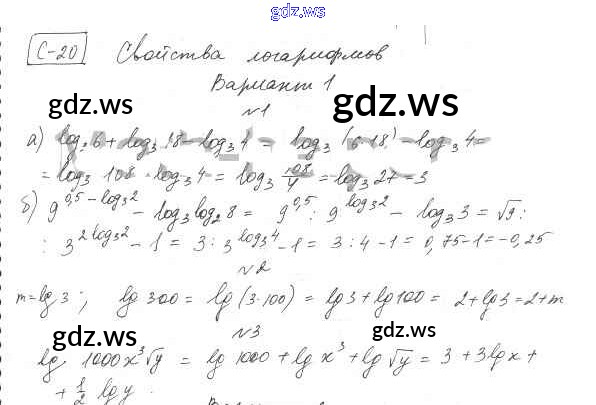 gdz.ws
С-20 Свойства логарифмов
Вариант 1
gdz.ws gdz.ws
№1
а) log₃6 + log₃18 - log₃4 = log₃(6·18) - log₃4 =
= log₃108 - log₃4 = log₃ 108/4 = log₃27 = 3
б) 9^(0,5 - log₃2) - log₃log₂8 = 9^0,5 : 9^log₃2 - log₃3 = √9 :
: 3^(2log₃2) - 1 = 3 : 3^log₃4 - 1 = 3 : 4 - 1 = 0,75 - 1 = -0,25
№2
m = lg 3 ; lg 300 = lg (3·100) = lg 3 + lg 100 = 2 + lg 3 = 2 + m
gdz.ws №3 gdz.ws
lg 1000x³√y = lg 1000 + lg x³ + lg √y = 3 + 3lg x +
+ 1/2 lg y.